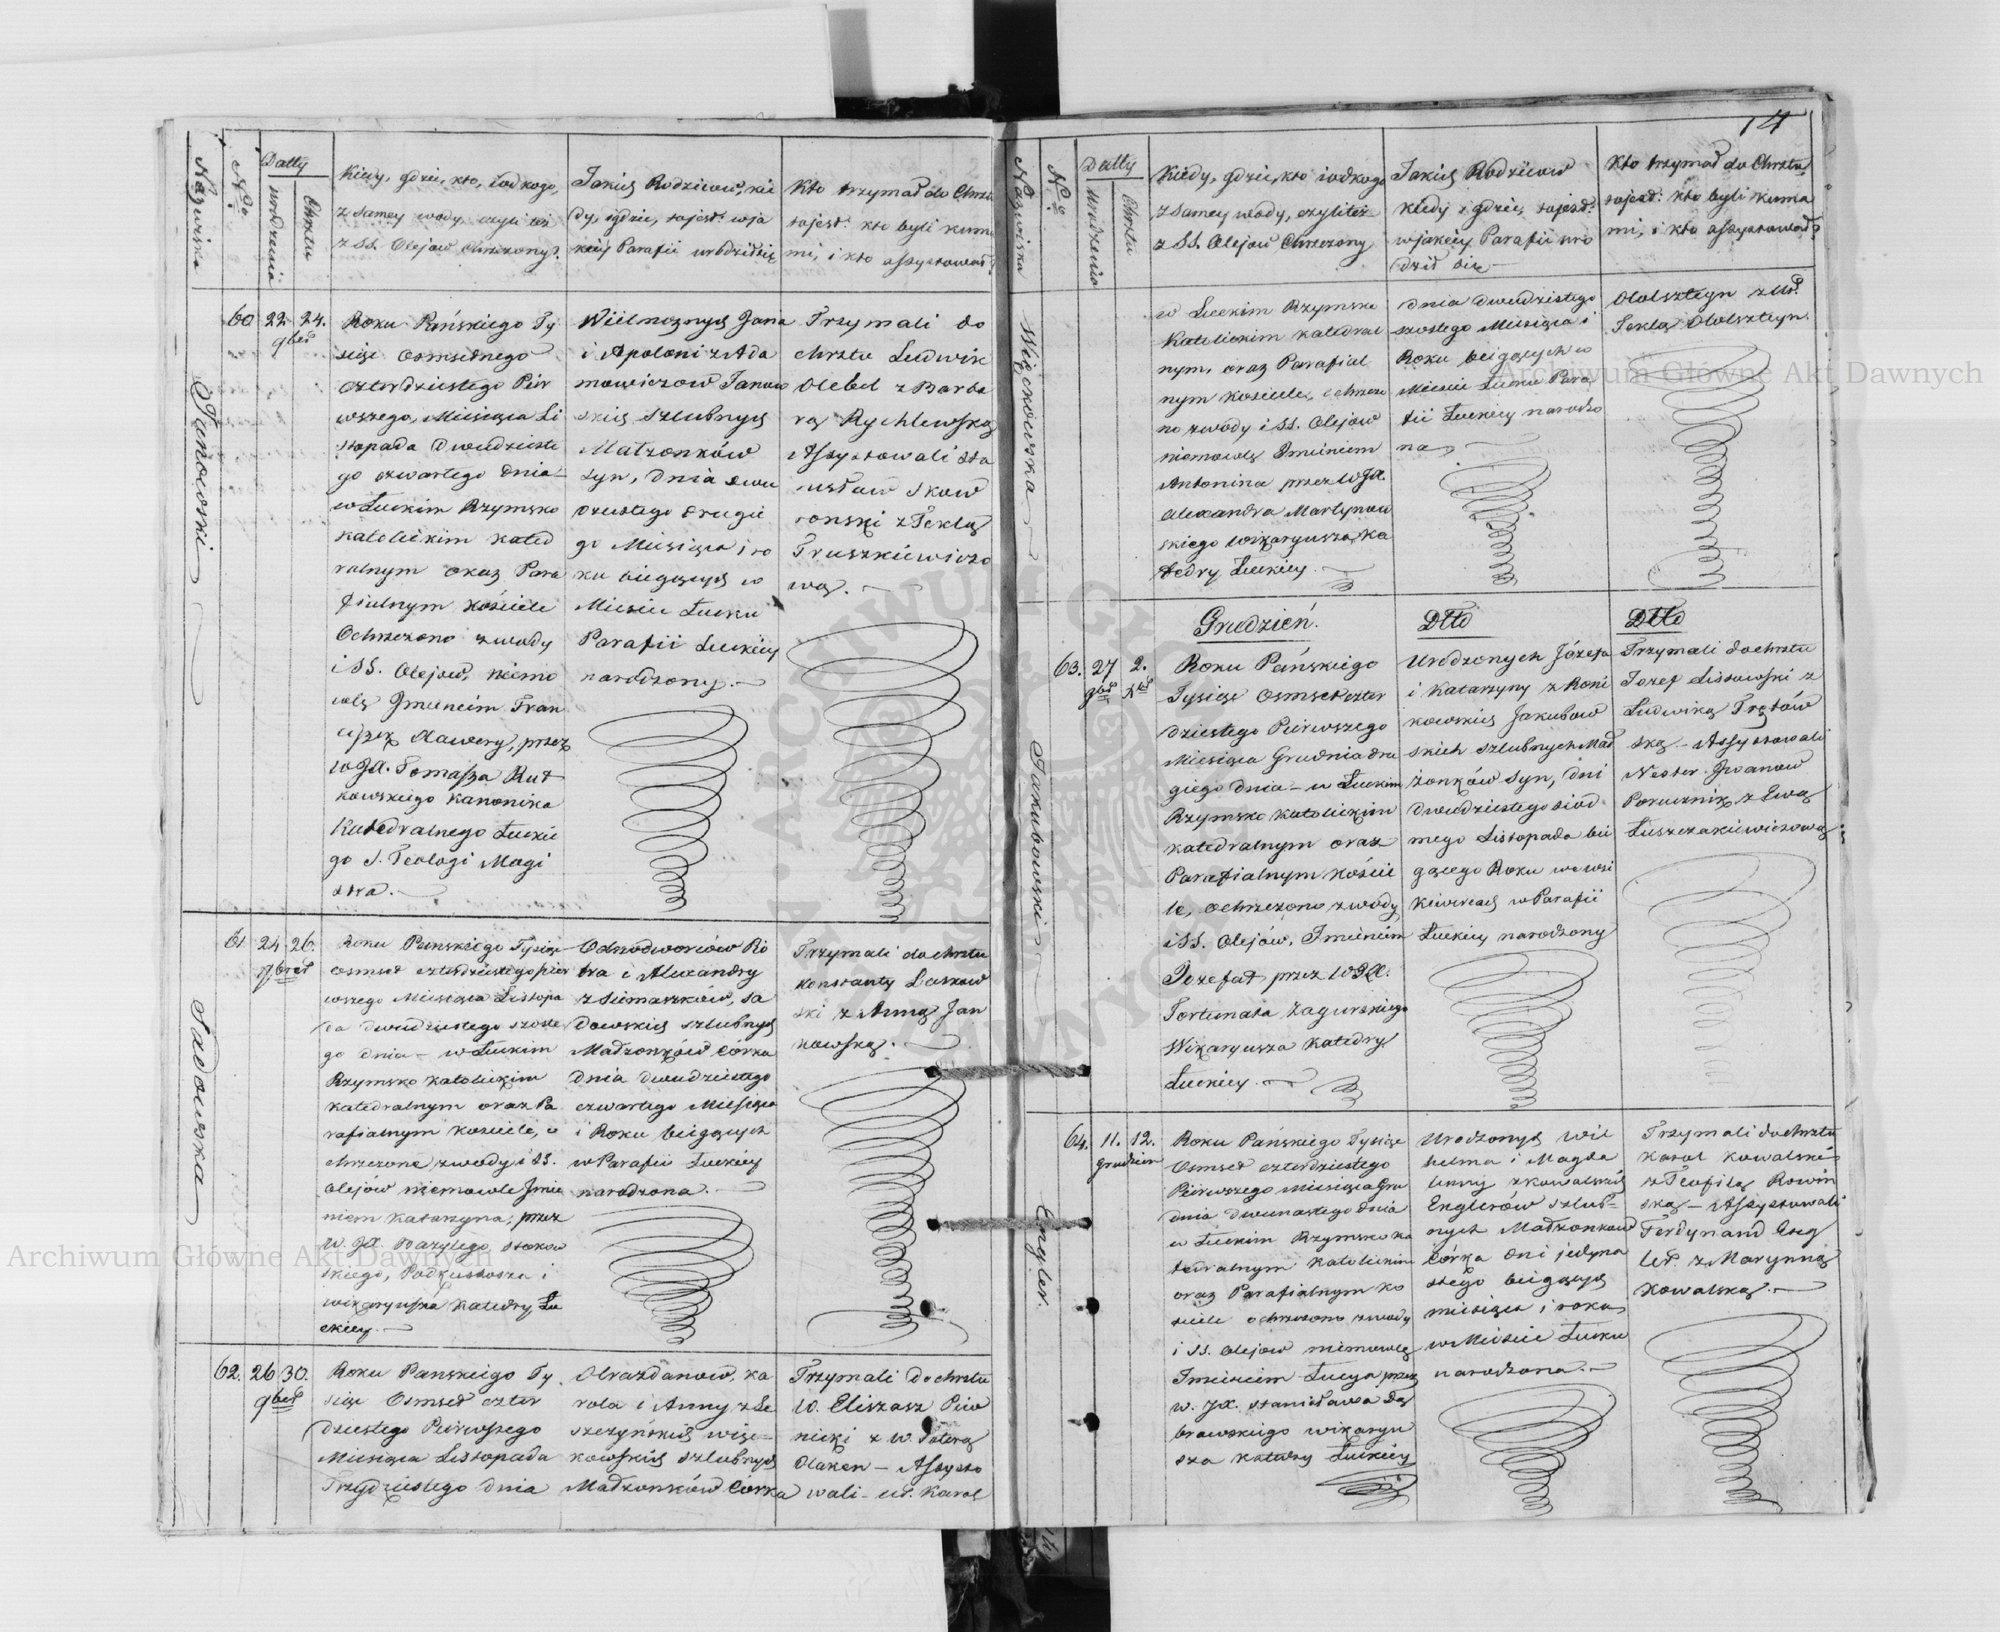 14
Nazwiska
No
Datty
urodzenia
Chrztu
Kiedy, gdzie, kto, iodkogo,
z samey wody, czyli też
z SS. Olejow Chrzczony?
Jakich Rodziców, kie
dy, i gdzie, to jest w ja
kiey Parafii urodził się
Kto trzymał do Chrztu
to jest: kto byli kuma
mi, i kto assystował?
Janowski
60
22. 24.
9bra
Roku Pańskiego Ty
siąc osmsetnego
czterdziestego Pier
wszego, Miesiąca Li
stopada Dwudzieste
go czwartego dnia
w Łuckim Rzymsko
katolickim kated
ralnym oraz Para
fialnym kościele
Ochrzczono z wody
i SS. Olejow, niemo
wlę Imieniem Fran
ciszek Xawery, przez
W JX. Tomasza Rut
kowskiego Kanonika
Katedralnego Łuckie
go S. Teologi Magi
stra.
Wielmożnych Jana
i Apoloni z Ada
mowiczow Janow
skich szlubnych
Małżonków
syn, dnia dwu
dziestego drugie
go Miesiąca i ro
ku bieżących w
Mieście Łucku
Parafii Łuckiey
narodzony.
Trzymali do
chrztu Ludwik
Olebel z Barba
rą Rychlewską
Assystowali Sta
nisław Skow
ronski z Teklą
Truszkiewiczo
wą.
Sadowska
61.
24 26.
9brat
Roku Panskiego Tysiąc
osmset czterdziestego pier
wszego Miesiąca Listopa
da dwudziestego szoste
go dnia w Łuckim
Rzymsko katolickim
katedralnym oraz Pa
rafialnym kosciele, o
chrzczone z wody i SS.
Olejów niemowle Imie
niem Katarzyna, przez
W. JX. Bazylego
skiego, Podkustosza i
wikaryusza Katedry Łu
ckiey.
Odnodworców Pio
tra i Alexandry
z Siemaszków, Sa
dowskich szlubnych
Małżonków Córka
dnia dwudziestego
czwartego Miesiąca
i Roku bieżących
w Parafii Łuckiey
narodzona.
Trzymali do chrztu
Konstanty Laskow
ski z Anną Jan
kowską.
62.
26 30.
9brat
Roku Panskiego Ty
siąc Osmset czter
dziestego Pierwszego
Miesiąca Listopada
Trzydziestego dnia
Obrażdanow, Ka
rola i Anny z Le
szczyńskich Więc
kowskich szlubnych
Małżonków Córka
Trzymali do chrztu
W. Eliszasz Piw
nicki z W.
Olaken Assysto
wali ur. Karol
Nazwiska
No
Datty
urodzenia
Chrztu
Kiedy, gdzie, kto iodkogo
z samey wody, czyliteż
z SS. Olejow Chrzczony
Jakich Rodziców
kiedy i gdzie, to jest:
w jakiey Parafii uro
dził się
Kto trzymał do Chrztu,
to jest: kto byli kuma
mi, i kto assystował?
Więckowska
w Łuckim Rzymsko
Katolickim katedral
nym, oraz Parafial
nym kosciele, ochrzczo
no z wody i SS. Olejow
niemowlę Imieniem
Antonina przez W JX.
Alexandra Martynow
skiego wikaryusza Ka
tedry Łuckiey.
dnia dwudziestego
szostego Miesiąca i
Roku bieżących w
Mieście Łucku Para
fii Łuckiey narodzo
na
Ololsztyn z Ur.
Teklą Ololsztyn.
Jakubowski
Grudzień.
Dtto
Dtto
63.
27 2.
9bra Xbra
Roku Pańskiego
Tysiąc osmset czter
dziestego Pierwszego
Miesiąca Grudnia dru
giego dnia w Łuckim
Rzymsko katolickim
katedralnym oraz
Parafialnym Koście
le, ochrzczono z wody
i SS. Olejów, Imieniem
Jozefat przez W JX.
Fortunata Zagurskiego
Wikaryusza Katedry
Łuckiey.
Urodzonych Józefa
i Katarzyny z Roni
kowskich Jakubow
skich szlubnych Mał
żonków syn, dni
dwudziestego siód
mego Listopada bie
gącego Roku we wsi
w Parafii
Łuckiey narodzony
Trzymali do chrztu
Jozef Lissowski z
Ludwiką
ską Assystowali
Nestor Iwanow
Porucznik z Ewą
Łuszczakiewiczową
Engler.
64.
11. 12.
Grudzien
Roku Pańskiego Tysiąc
Osmset czterdziestego
Pierwszego Miesiąca Gru
dnia dwunastego dnia
w Łuckim Rzymsko ka
tedralnym katolickim
oraz Parafialnym ko
sciele ochrzczono z wody
i SS. Olejow niemowlę
Imieniem Łucya przez
W. JX. Stanisława Dą
browskiego wikaryu
sza Katedry Łuckiey
Urodzonych Wil
helma i Magda
leny z Kowalskich
Englerów szlub
nych Małżonków
Córka dni jedyna
stego bieżących
miesiąca i roku
w Mieście Łucku
narodzona.
Trzymali do chrztu
Karol Kowalski
z Teofilą Rowin
ską Assystowali
Ferdynand Eng
ler z Maryanną
Kowalską.
Archiwum Główne Akt Dawnych
Archiwum Główne Akt Dawnych